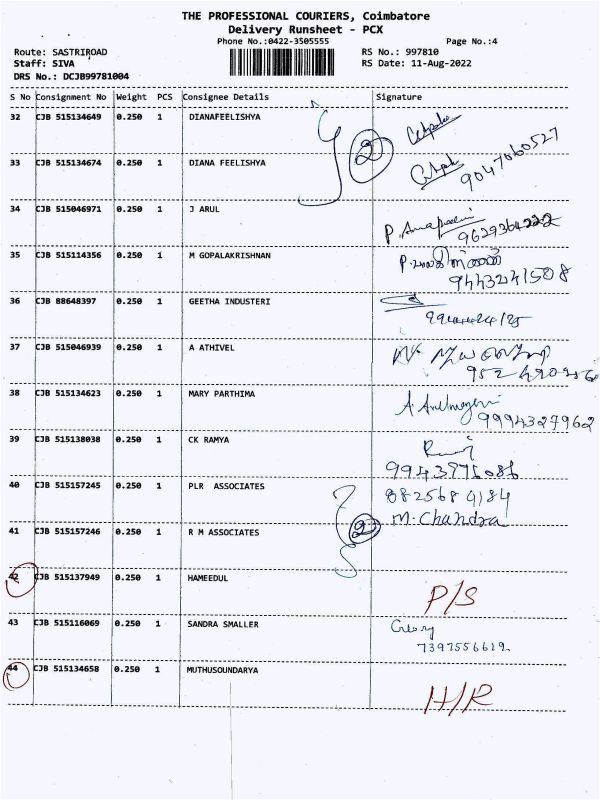 THE PROFESSIONAL COURIERS, Coimbatore
Delivery Runsheet - PCX
Phone No.:0422-3505555 Page No.:4
Route: SASTRIROAD RS No.: 997810
Staff: SIVA RS Date: 11-Aug-2022
DRS No.: DCJB99781004
S No Consignment No Weight PCS Consignee Details Signature
32 CJB 515134649 0.250 1 DIANAFEELISHYA
2
33 CJB 515134674 0.250 1 DIANA FEELISHYA
9047060527
34 CJB 515046971 0.250 1 J ARUL
9629364222
35 CJB 515114356 0.250 1 M GOPALAKRISHNAN
9443241508
36 CJB 88648397 0.250 1 GEETHA INDUSTERI
37 CJB 515046939 0.250 1 A ATHIVEL
38 CJB 515134623 0.250 1 MARY PARTHIMA
9994327962
39 CJB 515138038 0.250 1 CK RAMYA
9943971086
40 CJB 515157245 0.250 1 PLR ASSOCIATES
M. Chandra
2
41 CJB 515157246 0.250 1 R M ASSOCIATES
42 CJB 515137949 0.250 1 HAMEEDUL
P/S
43 CJB 515116069 0.250 1 SANDRA SMALLER
7397556612
44 CJB 515134658 0.250 1 MUTHUSOUNDARYA
H/R